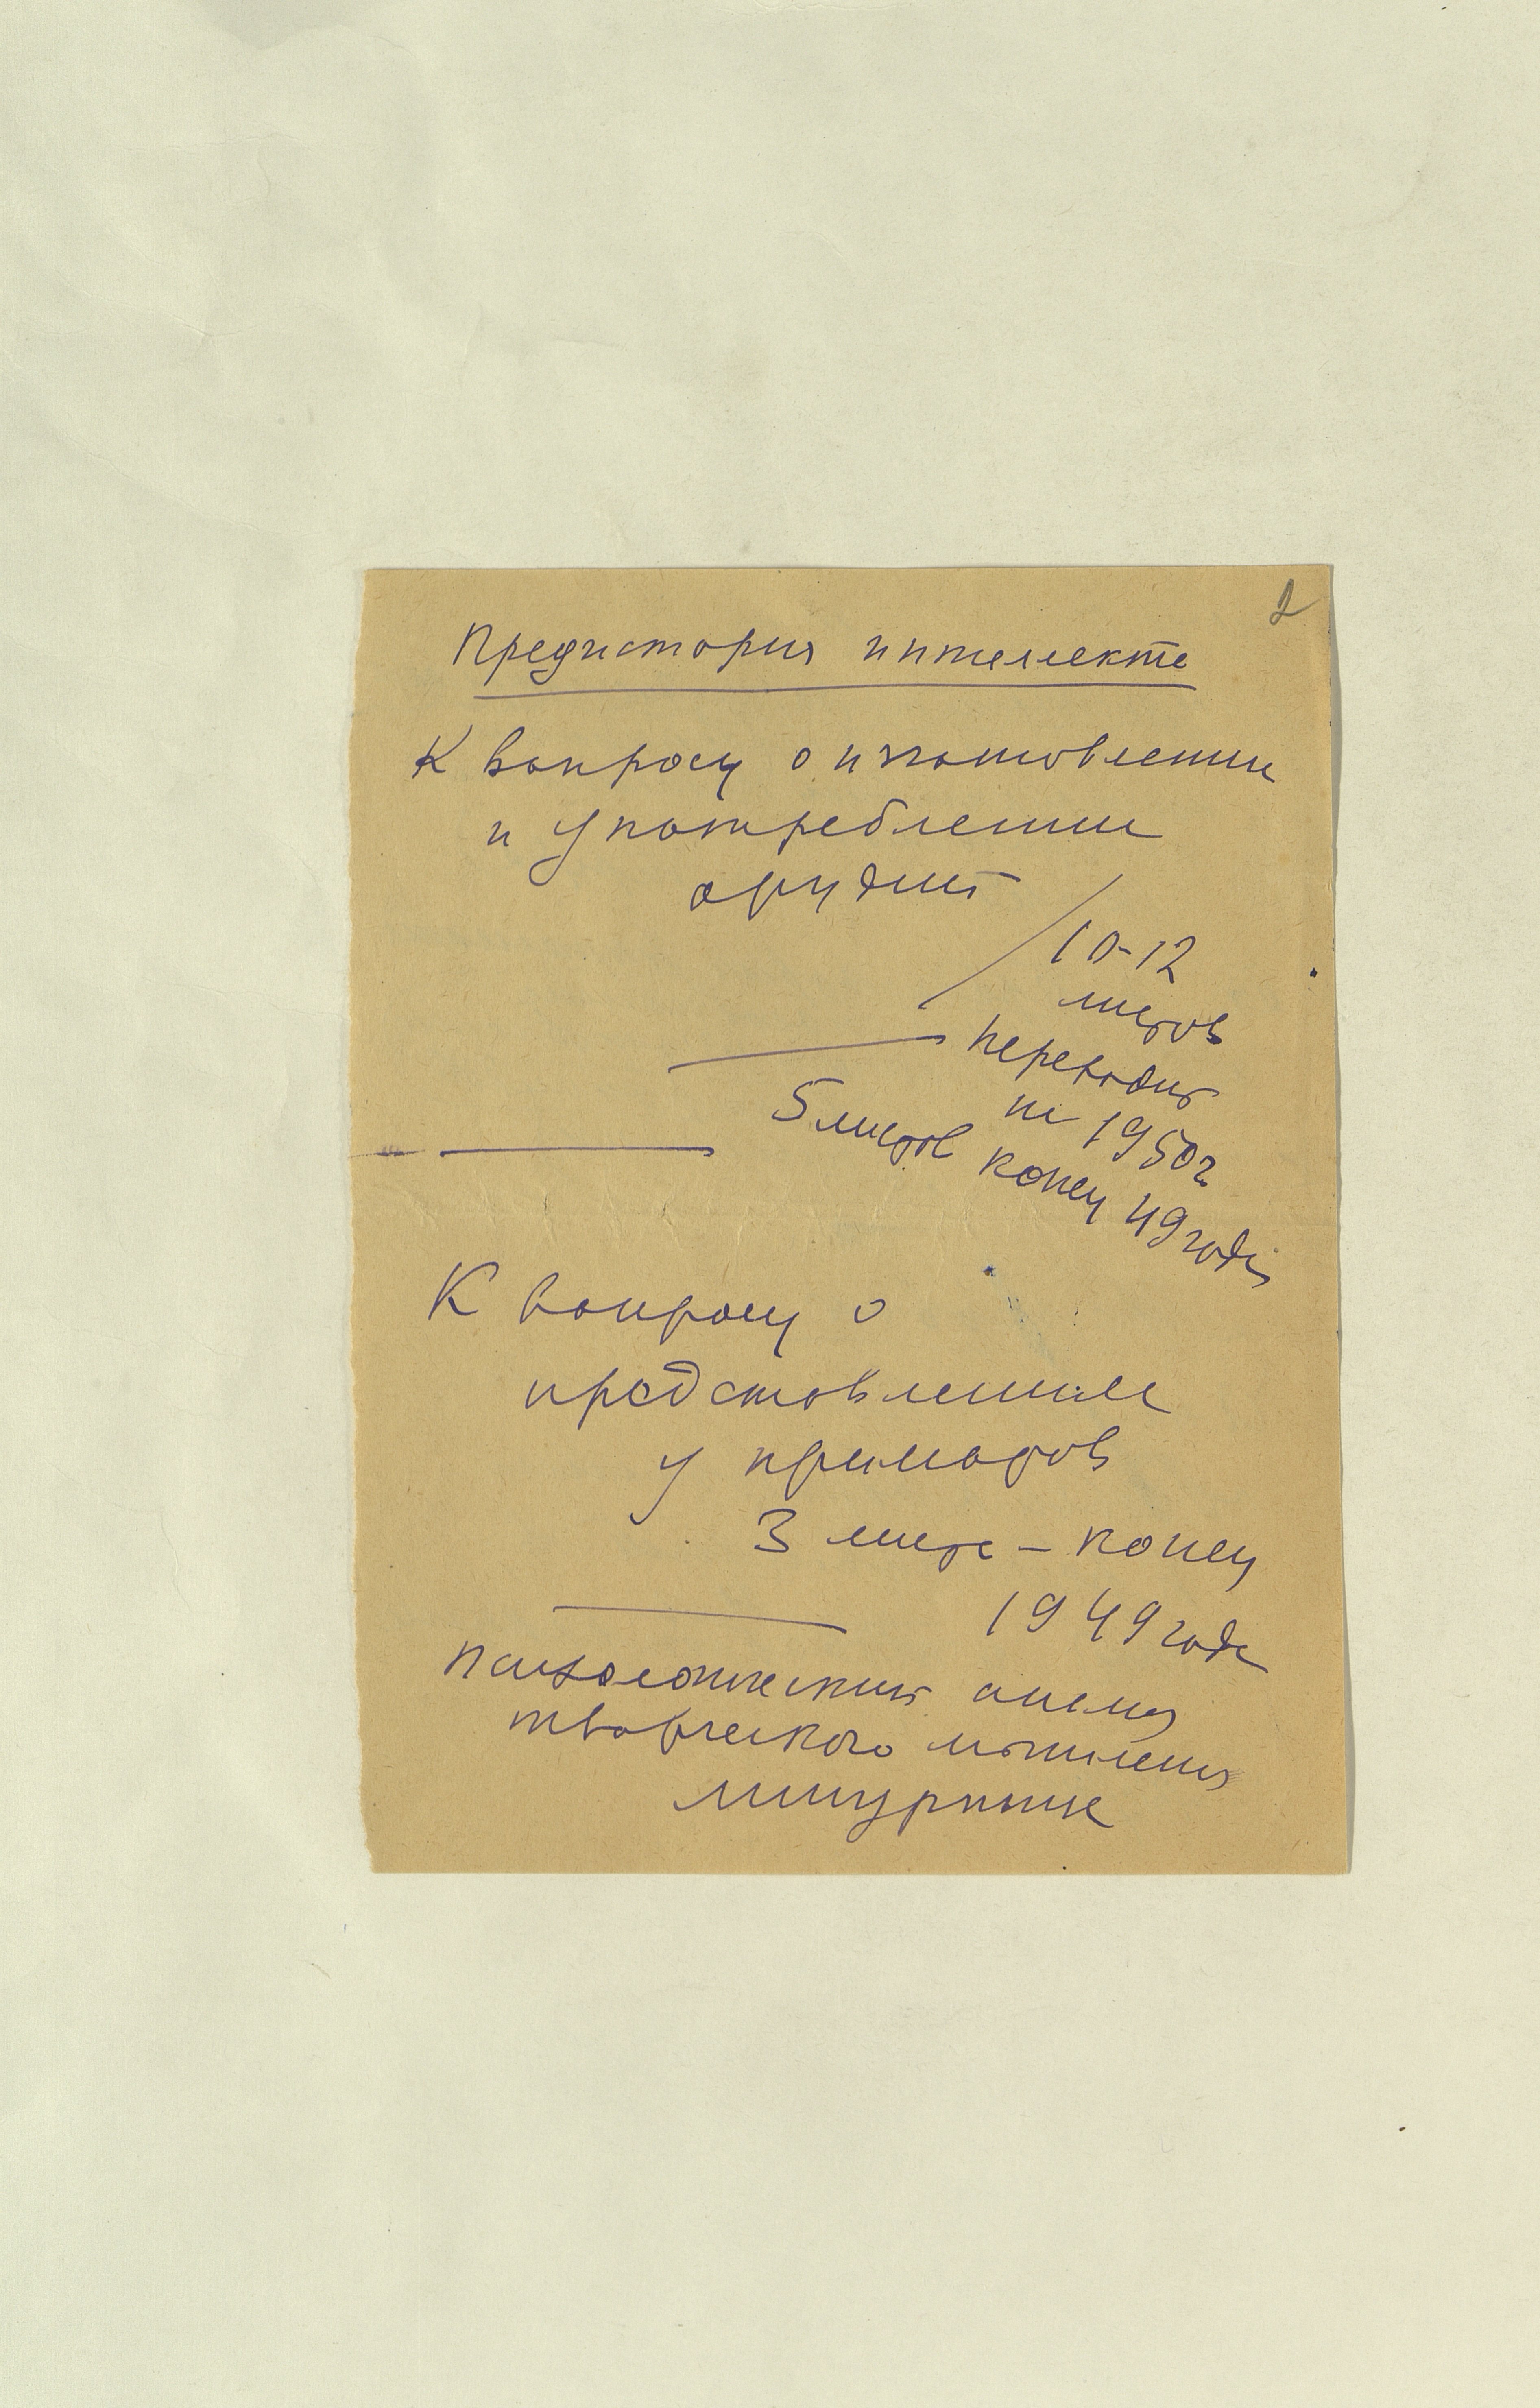 2
Предистория интеллекта
К вопросу о изготовлении
и употреблении
орудий
10-12
листов
переходит
на 1950 г.
5 листов конец 49 года
К вопросу о
представлении
у приматов
3 листа – конец
1949 года
Психологический анализ
творческого мышления
Мичурина